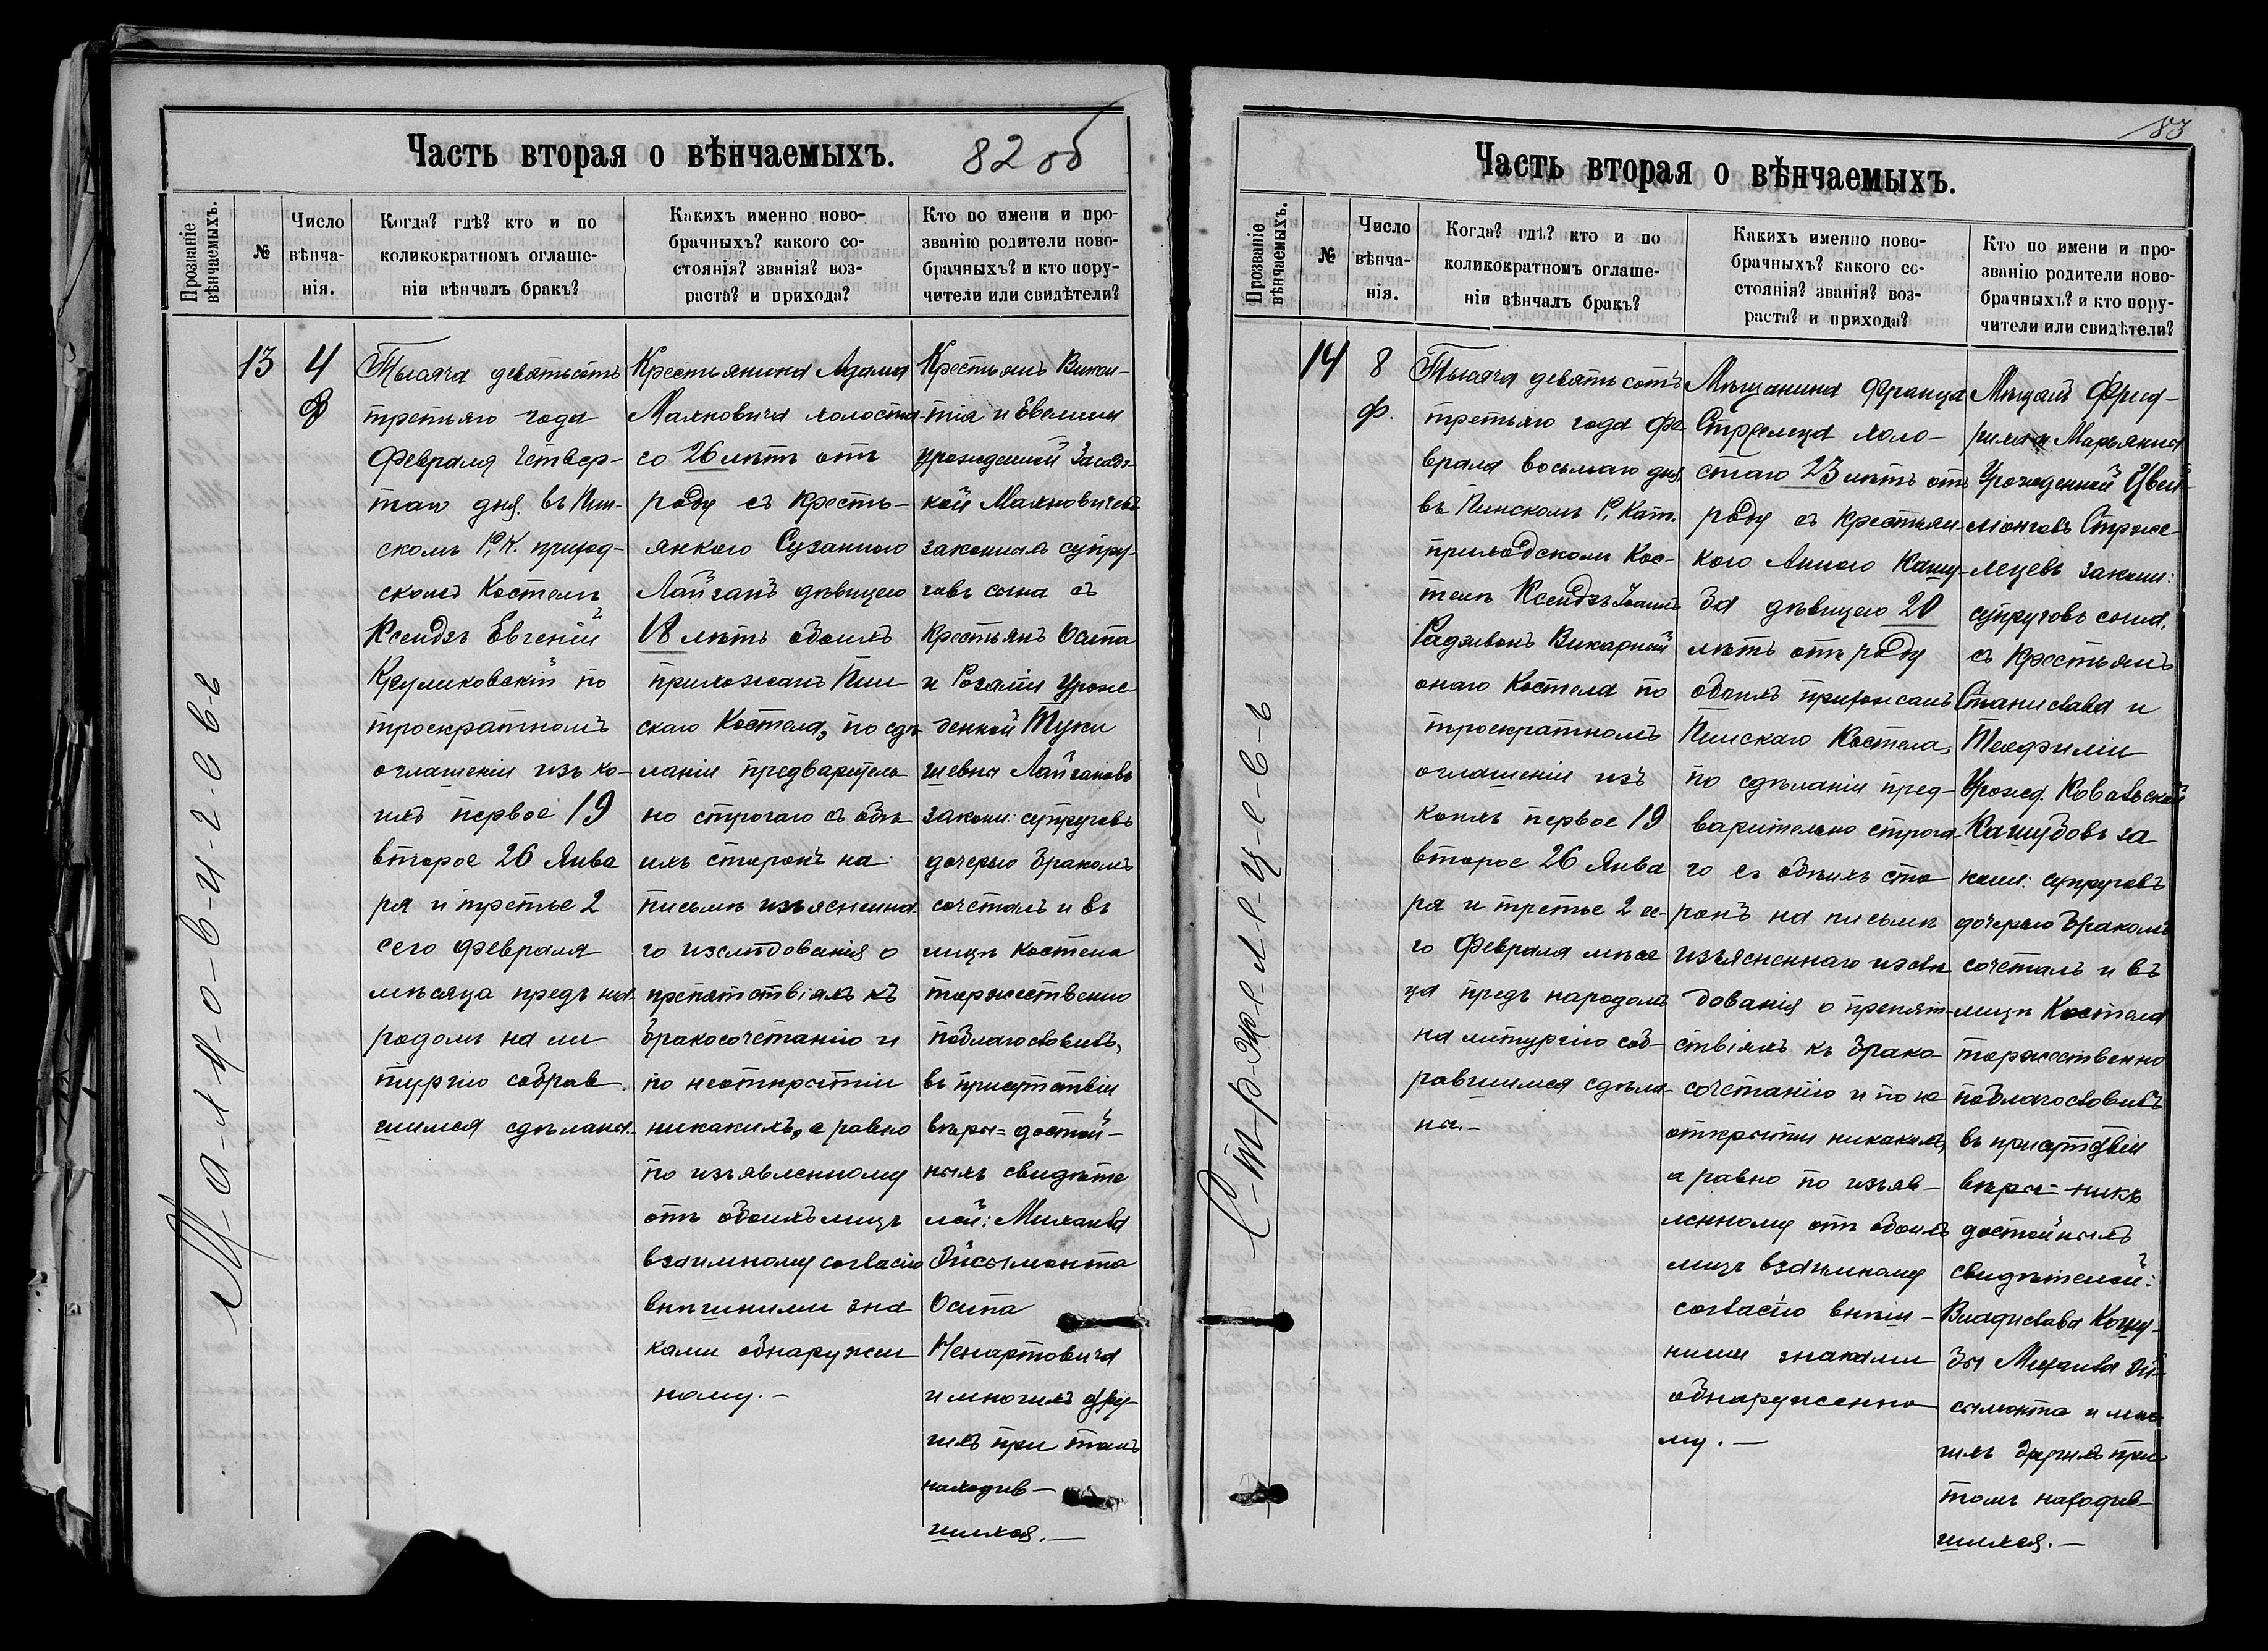 Часть вторая о вѣнчаемыхъ.
82 об
Прозваніе
вѣнчаемыхъ.
№
Число
вѣнча-
нія.
Когда? гдѣ? кто и по
коликократномъ оглаше-
ніи вѣнчалъ бракъ?
Какихъ именно ново-
брачныхъ? какого со-
стоянія? званія? воз-
раста? и прихода?
Кто по имени и про-
званію родители ново-
брачныхъ? и кто пору-
чители или свидѣтели?
М-а-л-н-о-в-и-ч-е-в-ъ
13
4
Ф
Тысяча девятьсотъ
третьяго года
Февраля четвер-
таго дня. въ Пин-
скомъ Р, К. приход-
скомъ Костелѣ
Ксендзъ Евгеній
по
троекратномъ
оглашеніи изъ ко-
ихъ первое 19
второе 26 Янва
ря и третье 2
сего февраля
мѣсяца предъ на-
родомъ на ли
тургію собрав
шимся сдѣланы.-
Крестьянина Адама
Малновича холоста
го 26 лѣтъ отъ
роду съ Кресть-
янкою Сузанною
Лайзанъ дѣвицею
18 лѣтъ обоихъ
прихожанъ Пин
скаго Костела, по сдѣ
ланіи предваритель
но строгаго съ обѣ
ихъ сторонъ на
письмѣ изъясненна
го изслѣдованія о
препятствіяхъ къ
бракосочетанію и
по неоткрытіи
никакихъ, а равно
по изъявленному
отъ обоихъ лицъ
взаимному согласію
внѣшними зна
ками обнаружен
ному. -
Крестьянъ Викен-
тія и Евелины
урожденной Засадз-
кой Малновичевъ
законныхъ супру-
говъ сына съ
Крестьянъ Осипа
и Розаліи урож-
денной
Лайзановъ
законн: супруговъ
дочерью бракомъ
сочеталъ и въ
лицѣ костела
торжественно
поблагословилъ,
въ присутствіи
вѣры= достой-
ныхъ свидѣте
лей: Михаила
Дисьмонта
Осипа
Ненартовича
и многихъ дру-
гихъ при томъ
находив-
шихся. -
83
Часть вторая о вѣнчаемыхъ.
Прозваніе
вѣнчаемыхъ.
№
Число
вѣнча-
нія.
Когда? гдѣ? кто и по
коликократномъ оглаше-
ніи вѣнчалъ бракъ?
Какихъ именно ново-
брачныхъ? какого со-
стоянія? званія? воз-
раста? и прихода?
Кто по имени и про-
званію родители ново-
брачныхъ? и кто пору-
чители или свидѣтели?
С-т-р-ж-е-л-е-ц-е-в-ъ
14
8
Ф.
Тысяча девятьсотъ
третьяго года Фе
враля восьмаго дня
въ Пинскомъ Р, Кат.
приходскомъ Кос-
телѣ Ксендзъ Іоаннъ
Радзивонъ Викарный
онаго Костела по
троекратномъ
оглашеніи изъ
коихъ первое 19
второе 26 Янва
ря и третье 2 се-
го Февраля мѣся
ца предъ народомъ
на литургію соб-
равшимся сдѣла-
ны.-
Мѣщанина Франца
Стржельца холо-
стаго 23 лѣтъ отъ
роду съ крестьян-
кою Анною Кашу-
ба дѣвицею 20
лѣтъ отъ роду
обоихъ прихожанъ
Пинскаго Костела,
по сдѣланіи пред-
варительно строга
го съ обѣихъ сто
ронъ на письмѣ
изъясненнаго изслѣ
дованія о препят-
ствіяхъ къ брако-
сочетанію и по не
открытіи никакихъ,
а равно по изъяв-
ленному отъ обоихъ
лицъ взаимному
согласію внѣш-
ними знаками
обнаруженно
му. -
Мѣщанъ Фрид-
риха и Марьянны
Урожденной
Стрже-
лецевъ законн:
супруговъ сына,
съ Крестьянъ
Станислава и
Теофиліи
Урожд. Ковальской
Кашубовъ за
конн: супруговъ
дочерью бракомъ
сочеталъ и въ
лицѣ Костела
торжественно
поблагословилъ
въ присутствіи
вѣры-
достойныхъ
свидѣтелей:
Владислава Кашу-
бы Михаила Ди-
сьмонта и мно
гихъ другихъ при
томъ находив-
шихся. -